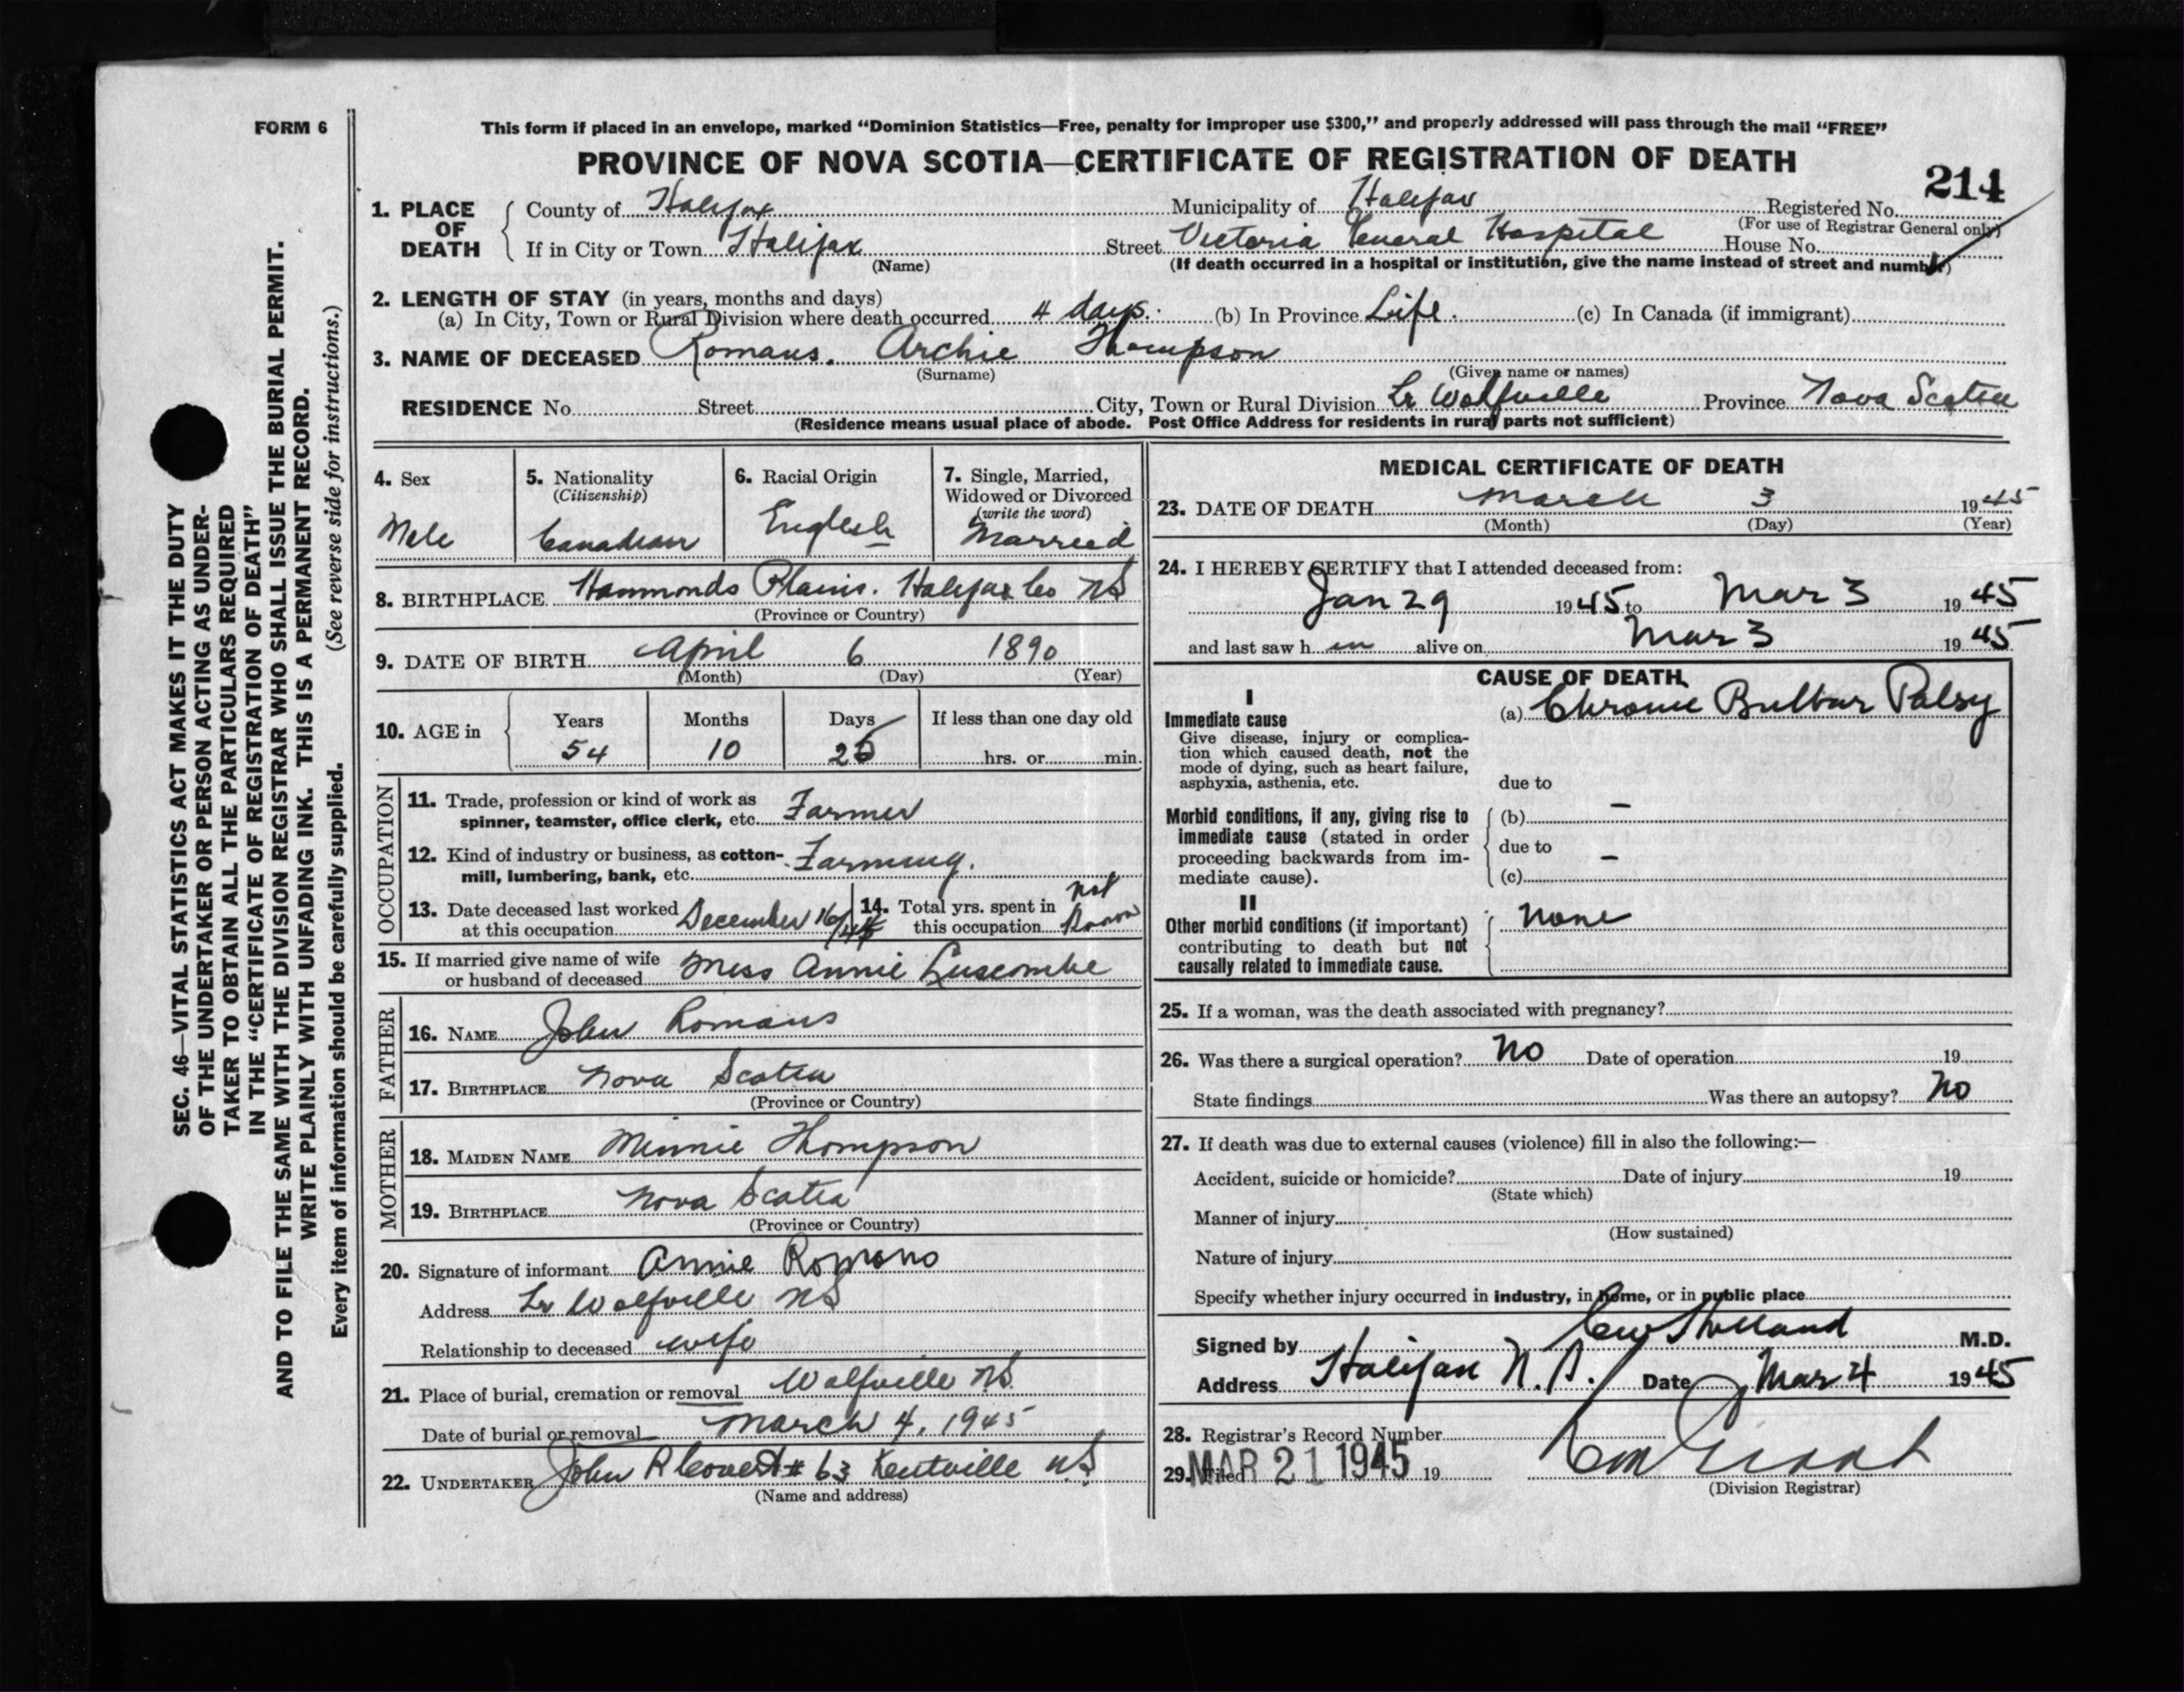 FORM 6
This form if placed in an envelope, marked “Dominion Statistics—Free, penalty for improper use $300,” and properly addressed will pass through the mail “FREE”
PROVINCE OF NOVA SCOTIA—CERTIFICATE OF REGISTRATION OF DEATH
214
1. PLACE OF DEATH
County of Halifax Municipality of Halifax Registered No.
(For use of Registrar General only)
If in City or Town Halifax Street Victoria General Hospital House No.
(Name) (If death occurred in a hospital or institution, give the name instead of street and number)
2. LENGTH OF STAY (in years, months and days)
(a) In City, Town or Rural Division where death occurred 4 days. (b) In Province Life. (c) In Canada (if immigrant)
3. NAME OF DECEASED Romans. Archie Thompson
(Surname) (Given name or names)
RESIDENCE No. Street City, Town or Rural Division Lr Wolfville Province Nova Scotia
(Residence means usual place of abode. Post Office Address for residents in rural parts not sufficient)
4. Sex
Male
5. Nationality
(Citizenship)
Canadian
6. Racial Origin
English
7. Single, Married,
Widowed or Divorced
(write the word)
Married
8. BIRTHPLACE Hammonds Plains. Halifax Co NS
(Province or Country)
9. DATE OF BIRTH April 6 1890
(Month) (Day) (Year)
10. AGE in
Years Months Days If less than one day old
54 10 hrs. or min.
OCCUPATION
11. Trade, profession or kind of work as
spinner, teamster, office clerk, etc. Farmer
12. Kind of industry or business, as cotton-
mill, lumbering, bank, etc. Farming.
13. Date deceased last worked
at this occupation December 16/44
14. Total yrs. spent in
this occupation not known
15. If married give name of wife
or husband of deceased Miss Annie Luscombe
FATHER
16. NAME John Romans
17. BIRTHPLACE Nova Scotia
(Province or Country)
MOTHER
18. MAIDEN NAME Minnie Thompson
19. BIRTHPLACE Nova Scotia
(Province or Country)
20. Signature of informant Annie Romans
Address Lr Wolfville NS
Relationship to deceased wife
21. Place of burial, cremation or removal Wolfville NS.
Date of burial or removal March 4, 1945
22. UNDERTAKER John R Covert # 63 Kentville N.S.
(Name and address)
MEDICAL CERTIFICATE OF DEATH
23. DATE OF DEATH March 3 1945
(Month) (Day) (Year)
24. I HEREBY CERTIFY that I attended deceased from:
Jan 29 1945 to Mar 3 1945
and last saw h im alive on Mar 3 1945
CAUSE OF DEATH
I
Immediate cause
Give disease, injury or complica-
tion which caused death, not the
mode of dying, such as heart failure,
asphyxia, asthenia, etc.
(a) Chronic Bulbar Palsy
due to
Morbid conditions, if any, giving rise to
immediate cause (stated in order
proceeding backwards from im-
mediate cause).
(b) –
due to
(c) –
II
Other morbid conditions (if important)
contributing to death but not
causally related to immediate cause.
None
25. If a woman, was the death associated with pregnancy?
26. Was there a surgical operation? No Date of operation 19
State findings Was there an autopsy? No
27. If death was due to external causes (violence) fill in also the following:—
Accident, suicide or homicide? Date of injury 19
(State which)
Manner of injury
(How sustained)
Nature of injury
Specify whether injury occurred in industry, in home, or in public place
Signed by Holland M.D.
Address Halifax N.S. Date Mar 4 1945
28. Registrar's Record Number
29. Filed MAR 21 1945 19
(Division Registrar)
SEC. 46—VITAL STATISTICS ACT MAKES IT THE DUTY
OF THE UNDERTAKER OR PERSON ACTING AS UNDER-
TAKER TO OBTAIN ALL THE PARTICULARS REQUIRED
IN THE “CERTIFICATE OF REGISTRATION OF DEATH”
AND TO FILE THE SAME WITH THE DIVISION REGISTRAR WHO SHALL ISSUE THE BURIAL PERMIT.
WRITE PLAINLY WITH UNFADING INK. THIS IS A PERMANENT RECORD.
Every item of information should be carefully supplied. (See reverse side for instructions.)